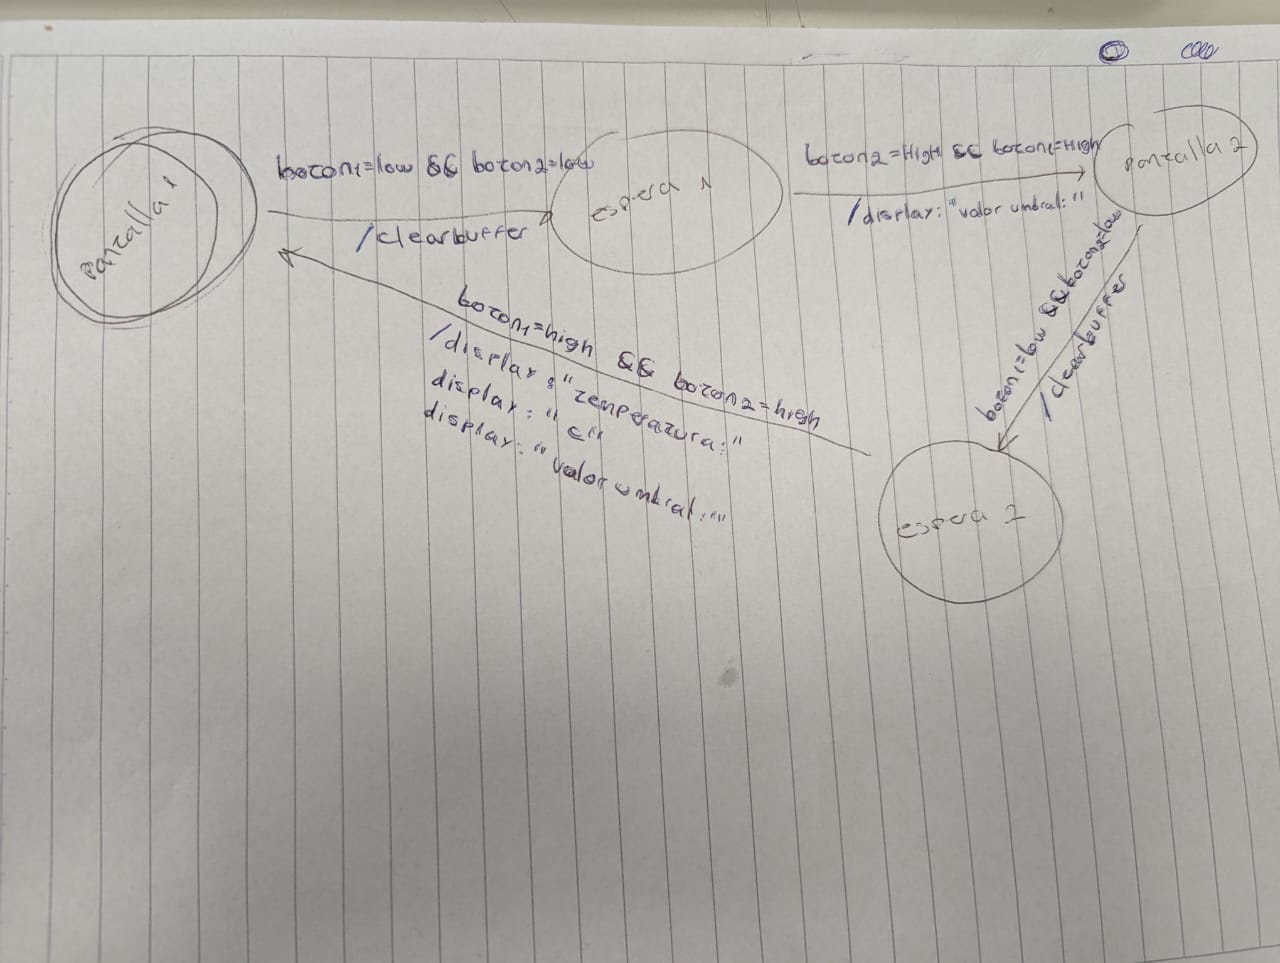 Pantalla 1
boton1=low && boton2=low
/clearbuffer
espera 1
boton2=High && boton1=High
/display: "valor umbral:"
Pantalla 2
boton1=low && boton2=low
/clearbuffer
espera 2
boton1=high && boton2=high
/display: "temperatura:"
display: "c"
display: "valor umbral:"